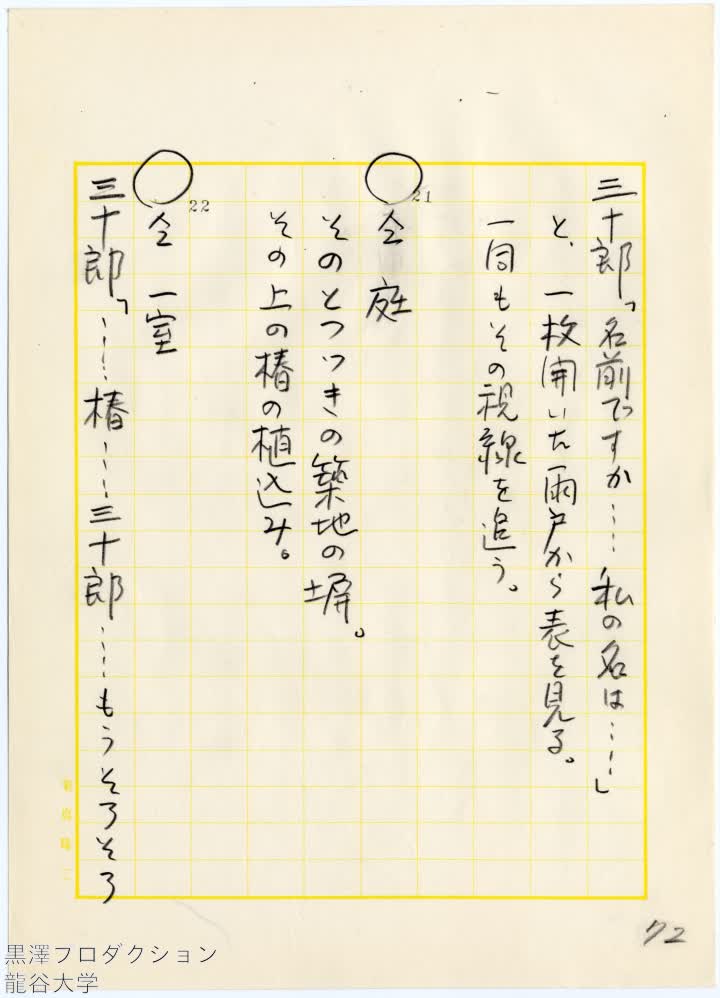 三十郎「名前ですか……私の名は……」
と、一枚開いた雨戸から表を見る。
一同もその視線を追う。
21
仝 庭
そのとっつきの築地の塀。
その上の椿の植込み。
22
仝 一室
三十郎「……椿……三十郎……もうそろそろ
72
黒澤プロダクション
龍谷大学